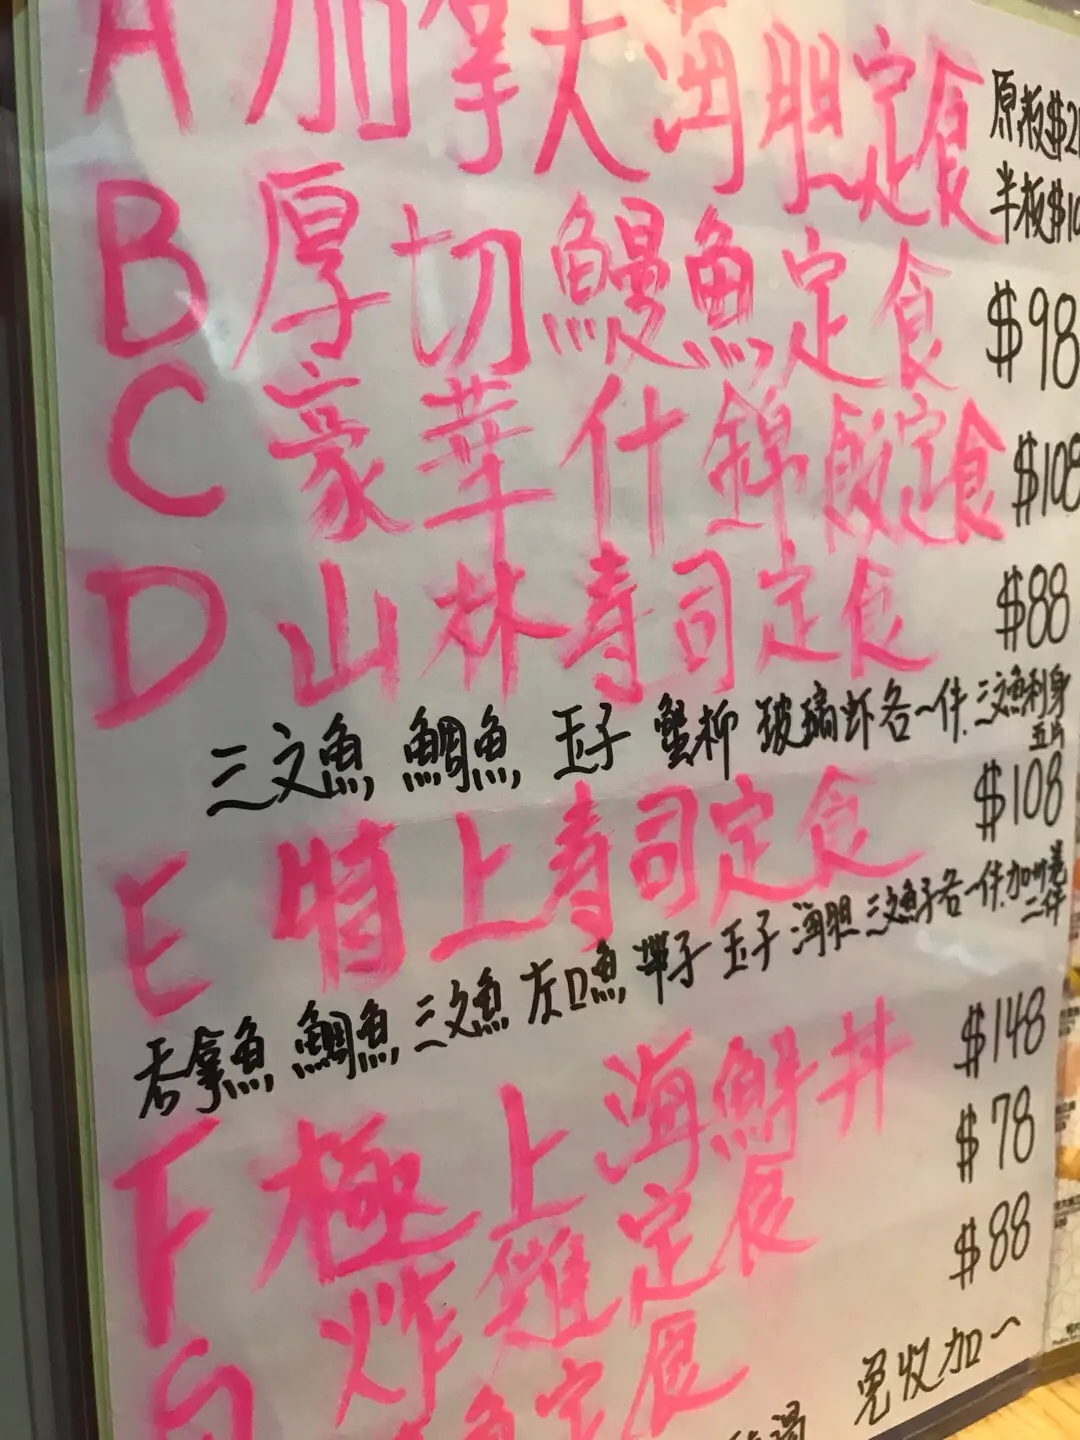 A 加拿大海胆定食 原板$2
半板$10
B 厚切鰻魚定食 $98
C 豪華什錦飯定食 $108
D 山林寿司定食 $88
三文魚 鯛魚 玉子 蟹柳 玻璃虾各一件 三文魚刺身
五片
E 特上寿司定食 $108
吞拿魚 鯛魚 三文魚 左口魚 帶子 玉子 海胆 三文魚子各一件 加州卷
二件
F 極上海鮮丼 $148
G 炸雞定食 $78
魚定食 $88
湯 免收加一